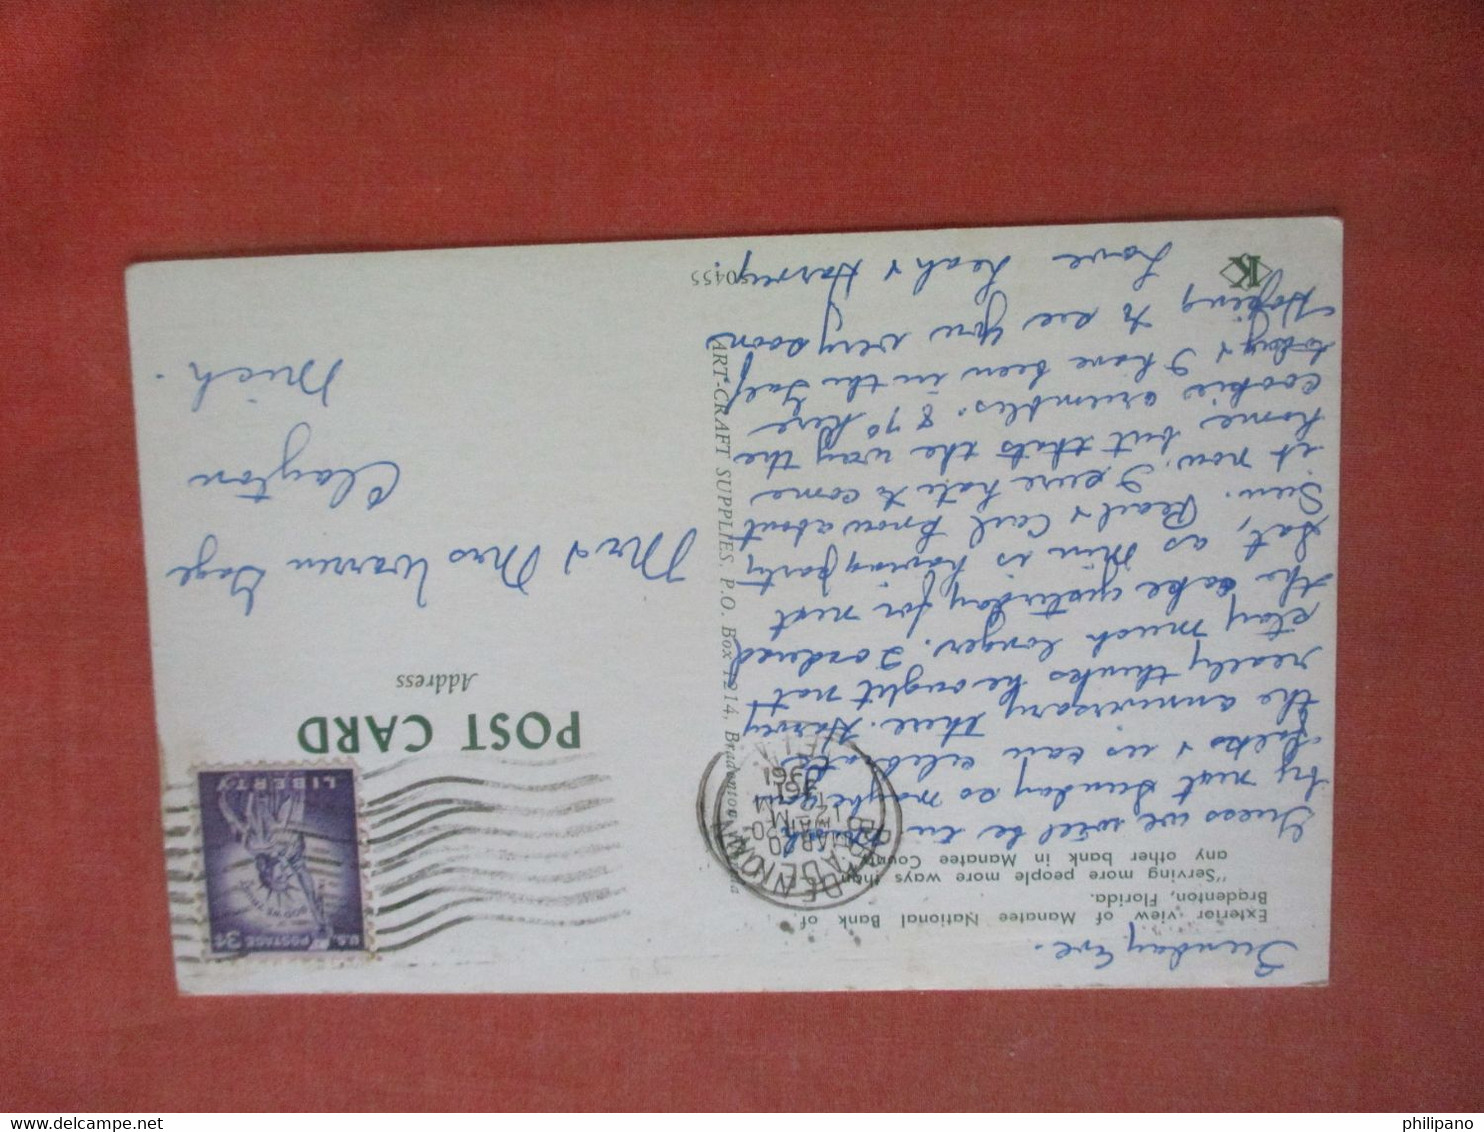 Sunday Eve.
Exterior view of Manatee National Bank of
Bradenton, Florida.
"Serving more people more ways than
any other bank in Manatee County"
Guess we will be in
by next Sunday so maybe you
folks & us can celebrate
the anniversary there. Harvey
really thinks he ought not
stay much longer. I ordered
the cake yesterday for next
Sat, as Min is having party
Sun. Pearl & Carl know about
it now. I sure hate to come
home but thats the way the
cookie crumbles. 87° here
today & I have been in the Gulf
Hoping to see you very soon
Love Leah & Harvey.
K
50455
ART-CRAFT SUPPLIES, P.O. Box 1214, Bradenton, Florida
BRADENTON
MAR 20
12 M
1961
FLA.
U.S. POSTAGE 3¢
IN GOD WE TRUST
LIBERTY
POST CARD
Address
Mr & Mrs Warren Gage
Clayton
Mich.
philipano